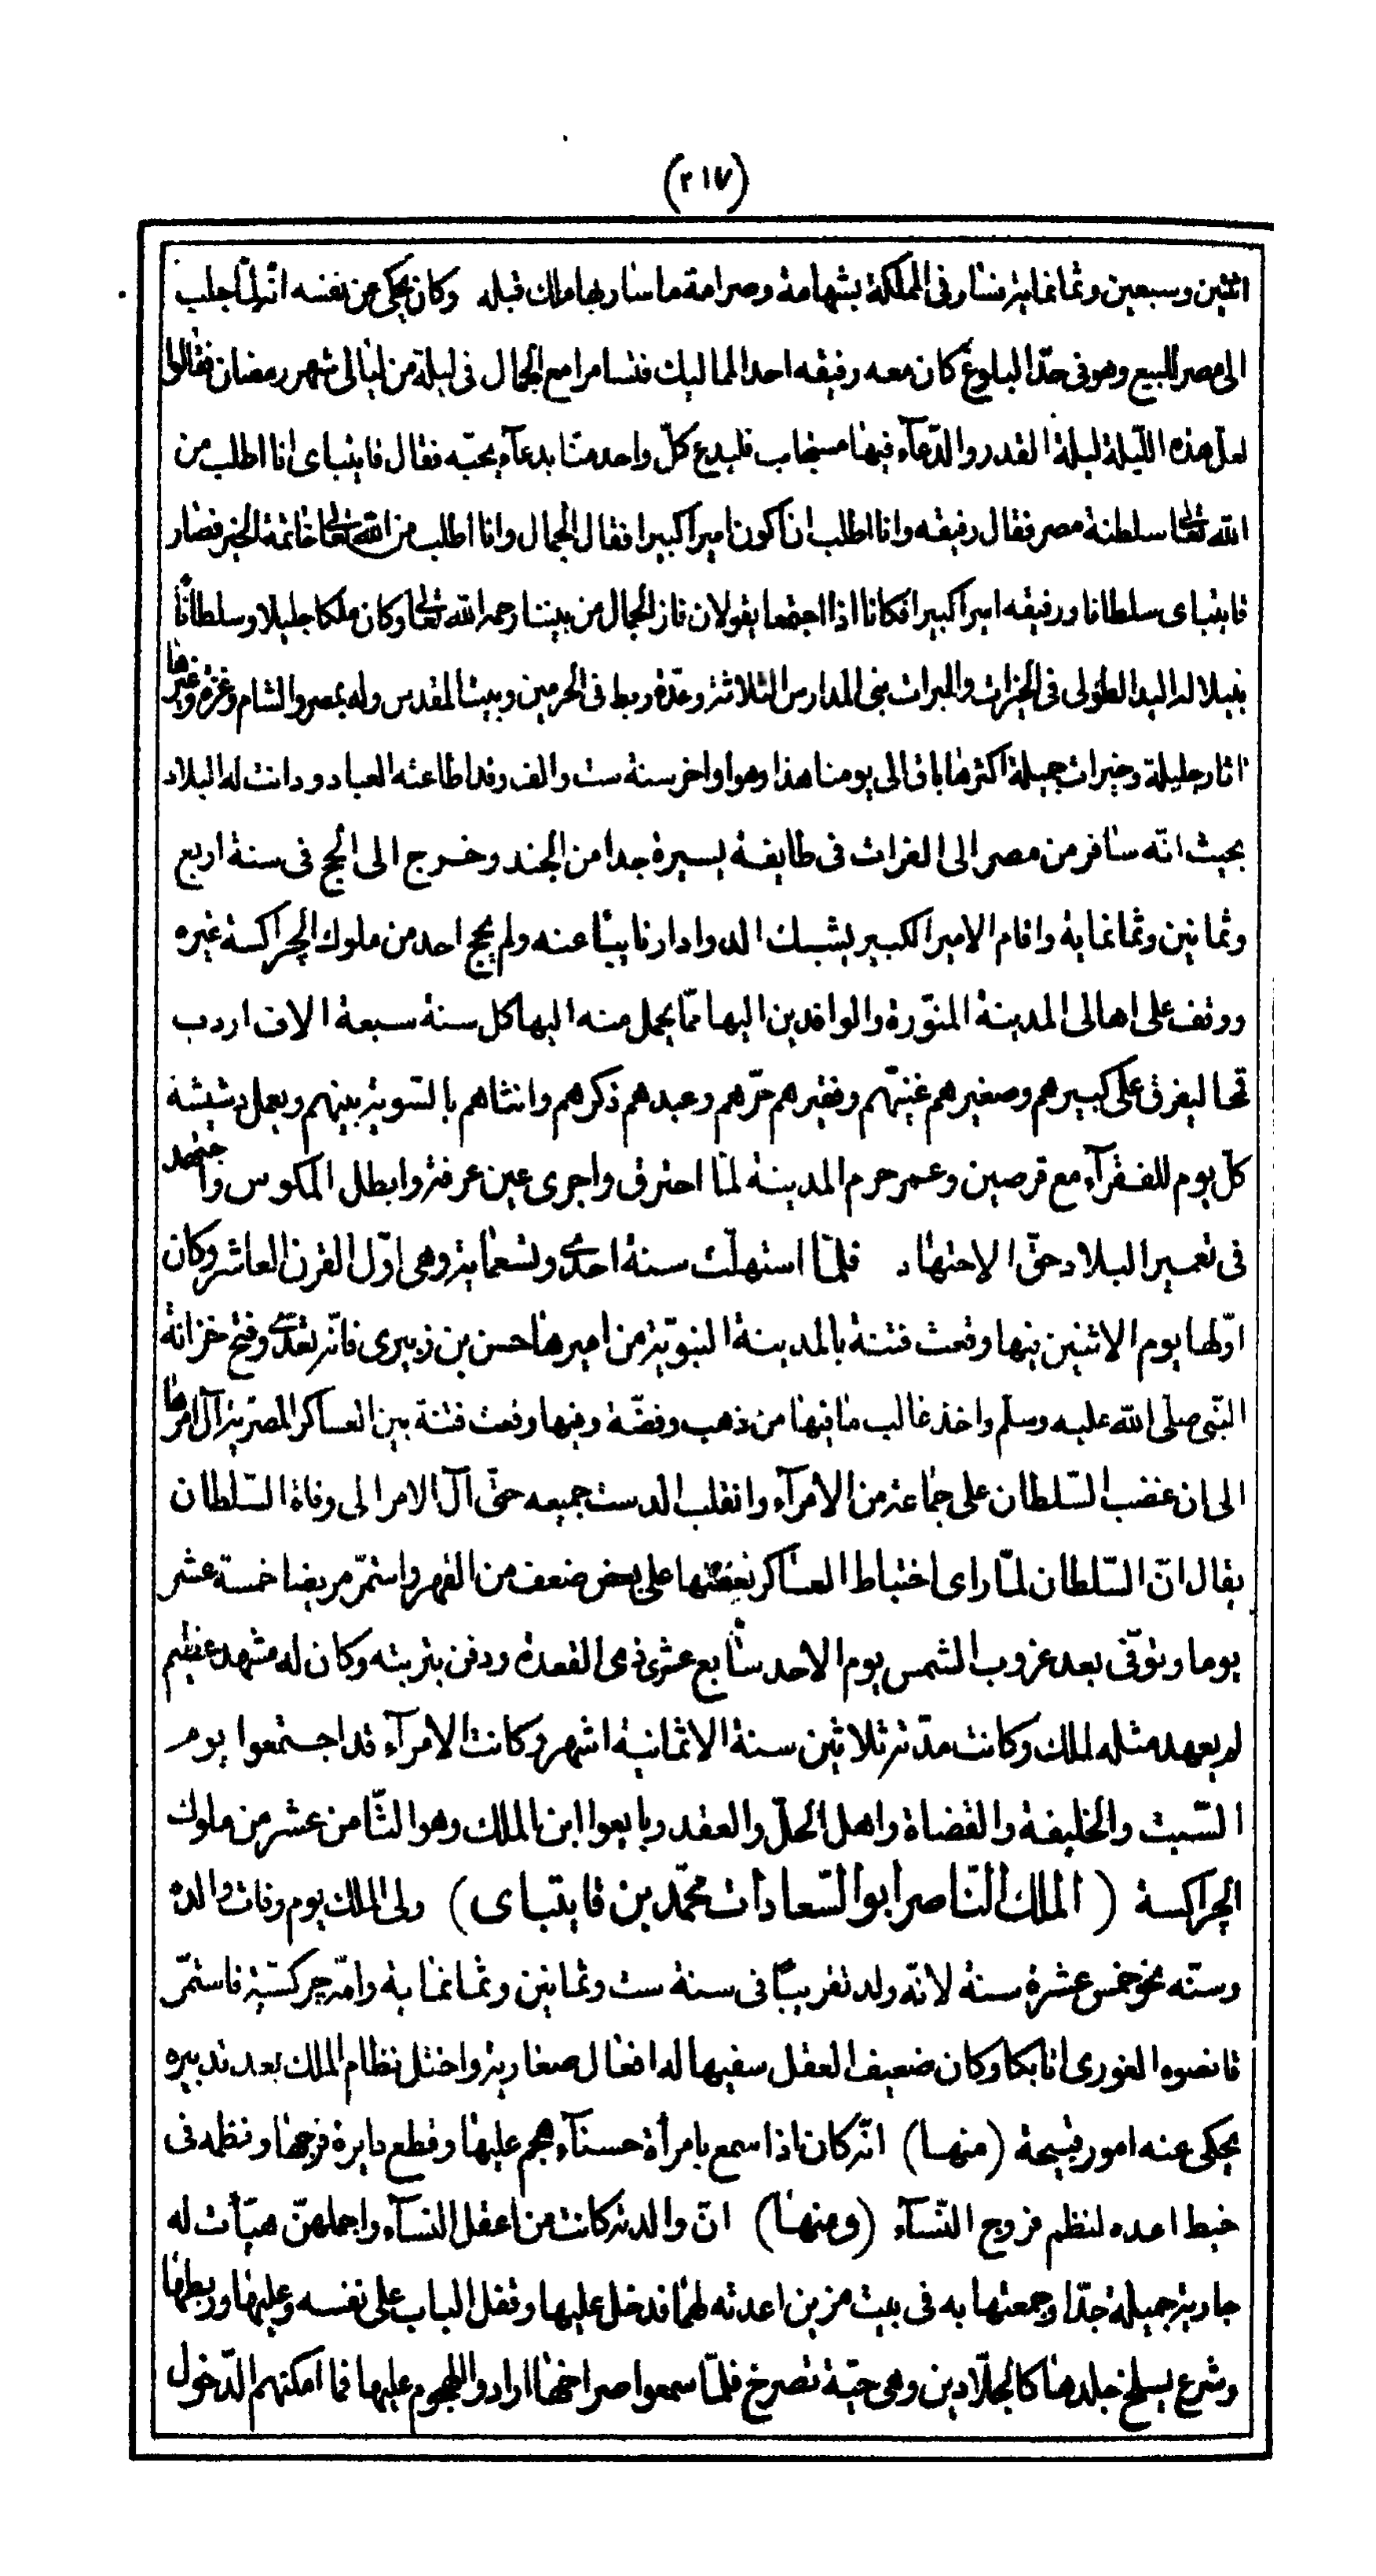 (٢١٧)
اثنتين وسبعين وثمانمایة فسار فى المملكة بشهامة وصرامة ما سار بها ملك قبله وكان يحكى عن نفسه انّه لمّا جلب
الى مصر للبيع وهو فى حدّ البلوغ كان معه رفيقه احد المماليك فتسامرا مع الجمال فى ليلة من ليالى شهر رمضان فقالوا
لعل هذه اللّيلة ليلة القدر والدّعآء فيها مستجاب فليدع كلّ واحد منّا بدعآء يحبّه فقال قايتباى انا اطلب من
الله تعالى سلطنة مصر فقال رفيقه وانا اطلب ان اكون اميرا كبيرا فقال الجمال وانا اطلب من الله تعالى خاتمة الخير فصار
قايتباى سلطانا ورفيقه اميرا كبيرا فكانا اذا اجتمعا يقولان فاز الجمال من بيننا رحمه الله تعالى وكان ملكا جليلا وسلطانًا
نبيلا له اليد الطولى فى الخيرات والمبرات بنى المدارس الثلاثة وعدّة ربط فى الحرمين وبيت المقدس وله بمصر والشام وغزة وغيرها
اثار جليلة وخيرات جميلة اكثرها باق الى يومنا هذا وهو اواخر سنة ست والف وقد اطاعته العباد ودانت له البلاد
بحيث انّه سافر من مصر الى الفرات فى طايفة يسيرة جدا من الجند وخرج الى الحج فى سنة اربع
وثمانين وثمانمایة واقام الامير الكبير يشبك الدوادار نايبًا عنه ولم يحج احد من ملوك الچراكسة غيره
ووقف على اهالى المدينة المنوّرة والوافدين اليها ممّا يحمل منه اليها كل سنة سبعة الاف اردب
قمحا ليفرق على كبيرهم وصغيرهم غنيّهم وفقيرهم حرّهم وعبدهم ذكرهم وانثاهم بالتسوية بينهم ويعمل دشيشة
كلّ يوم للفقرآء مع قرصين وعمر حرم المدينة لمّا احترق واجرى عين عرفة وابطل المكوس واجتهد
فى تعمير البلاد حقّ الاجتهاد فلمّا استهلّت سنة احدى وتسعمایة وهى اوّل القرن العاشر وكان
اوّلها يوم الاثنين فيها وقعت فتنة بالمدينة النبويّة من اميرها حسن بن زبيرى فانّه تعدّى وفتح خزانة
النّبى صلى الله عليه وسلّم واخذ غالب ما فيها من ذهب وفضّة وفيها وقعت فتنة بين العساكر المصريّة آل امرها
الى ان غضب السّلطان على جماعة من الأمرآء وانقلب الدست جميعه حتّى آل الامر الى وفاة السّلطان
يقال انّ السّلطان لمّا راى اختباط العساكر بعضها على بعض ضعف من القهر واستمرّ مريضا خمسة عشر
يوما وتوفّى بعد غروب الشمس يوم الاحد سابع عشرى ذى القعدة ودفن بتربته وكان له مشهد عظيم
لم يعهد مثله لملك وكانت مدّته ثلاثين سنة الا ثمانية اشهر وكانت الأمرآء قد اجتمعوا يوم
السّبت والخليفة والقضاة واهل الحلّ والعقد وبايعوا ابن الملك وهو الثّامن عشر من ملوك
الچراكسة (الملك النّاصر ابو السّعادات محمّد بن قايتباى) ولى الملك يوم وفات والده
وسنّه نحو خمس عشرة سنة لانّه ولد تقريبًا فى سنة ست وثمانين وثمانمایة وامّه چركسيّة فاستمرّ
قانصوه الغورى اتابكا وكان ضعيف العقل سفيها له افعال صغارية واختل نظام الملك بعد تدبيره
يحكى عنه امور قبيحة (منها) انّه كان اذا سمع بامرأة حسنآء هجم عليها وقطع دايرة فرجها ونظمه فى
خيط اعده لنظم فروج النّسآء (ومنها) انّ والدته كانت من اعقل النسآء واجملهنّ هيّأت له
جارية جميلة جدّا وجمعتها به فى بيت مزين اعدته لهما فدخل عليها وقفل الباب على نفسه وعليها وربطها
وشرع يسلخ جلدها كالجلّادين وهى حيّة تصرخ فلمّا سمعوا صراخها ارادوا الهجوم عليها فما امكنهم الدّخول